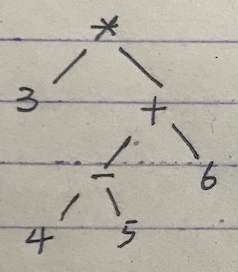 *
3 +
- 6
4 5